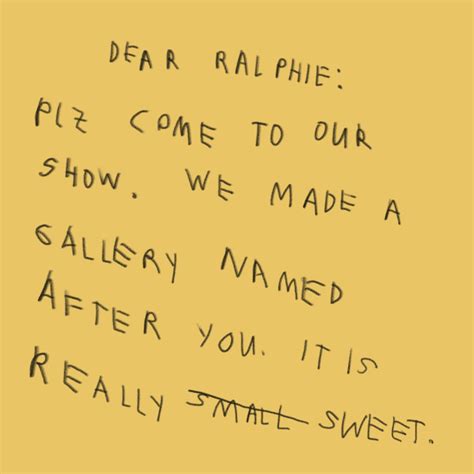 DEAR RALPHIE:
PLZ COME TO OUR
SHOW. WE MADE A
GALLERY NAMED
AFTER YOU. IT IS
REALLY ~~SMALL~~ SWEET.